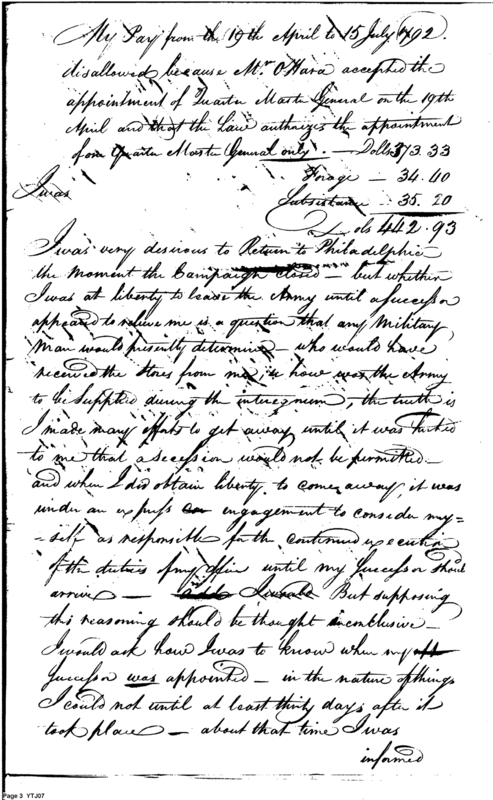 My Pay from the 19th April to 15 July 1792.
disallowed because Mr. O'Hara accepted the
appointment of Quarter Master General on the 19th
April and that the Law authorizes the appointment
for one Quarter Master General only. — Dolls 373.33
Forage — 34.40
I was
Subsistance 35.20
Dols 442.93
I was very desirous to Return to Philadelphia
the moment the Campaign closed — but whether
I was at liberty to leave the Army until a Successor
appeared to relieve me is a question that any Military
man would presently determine — who would have
received the Stores from me, or how was the Army
to be Supplied during the interegnum, the truth is
I made many efforts to get away until it was hinted
to me that a secession would not be permitted —
and when I did obtain liberty to come away, it was
under an express engagement to consider my=
=self as responsible for the continued execution
of the duties of my office until my Successor should
arrive — But supposing
this reasoning should be thought inconclusive —
I would ask how I was to know when my
Successor was appointed — in the nature of things
I could not until at least thirty days after it
took place — about that time I was
informed
Page 3 YTJ07